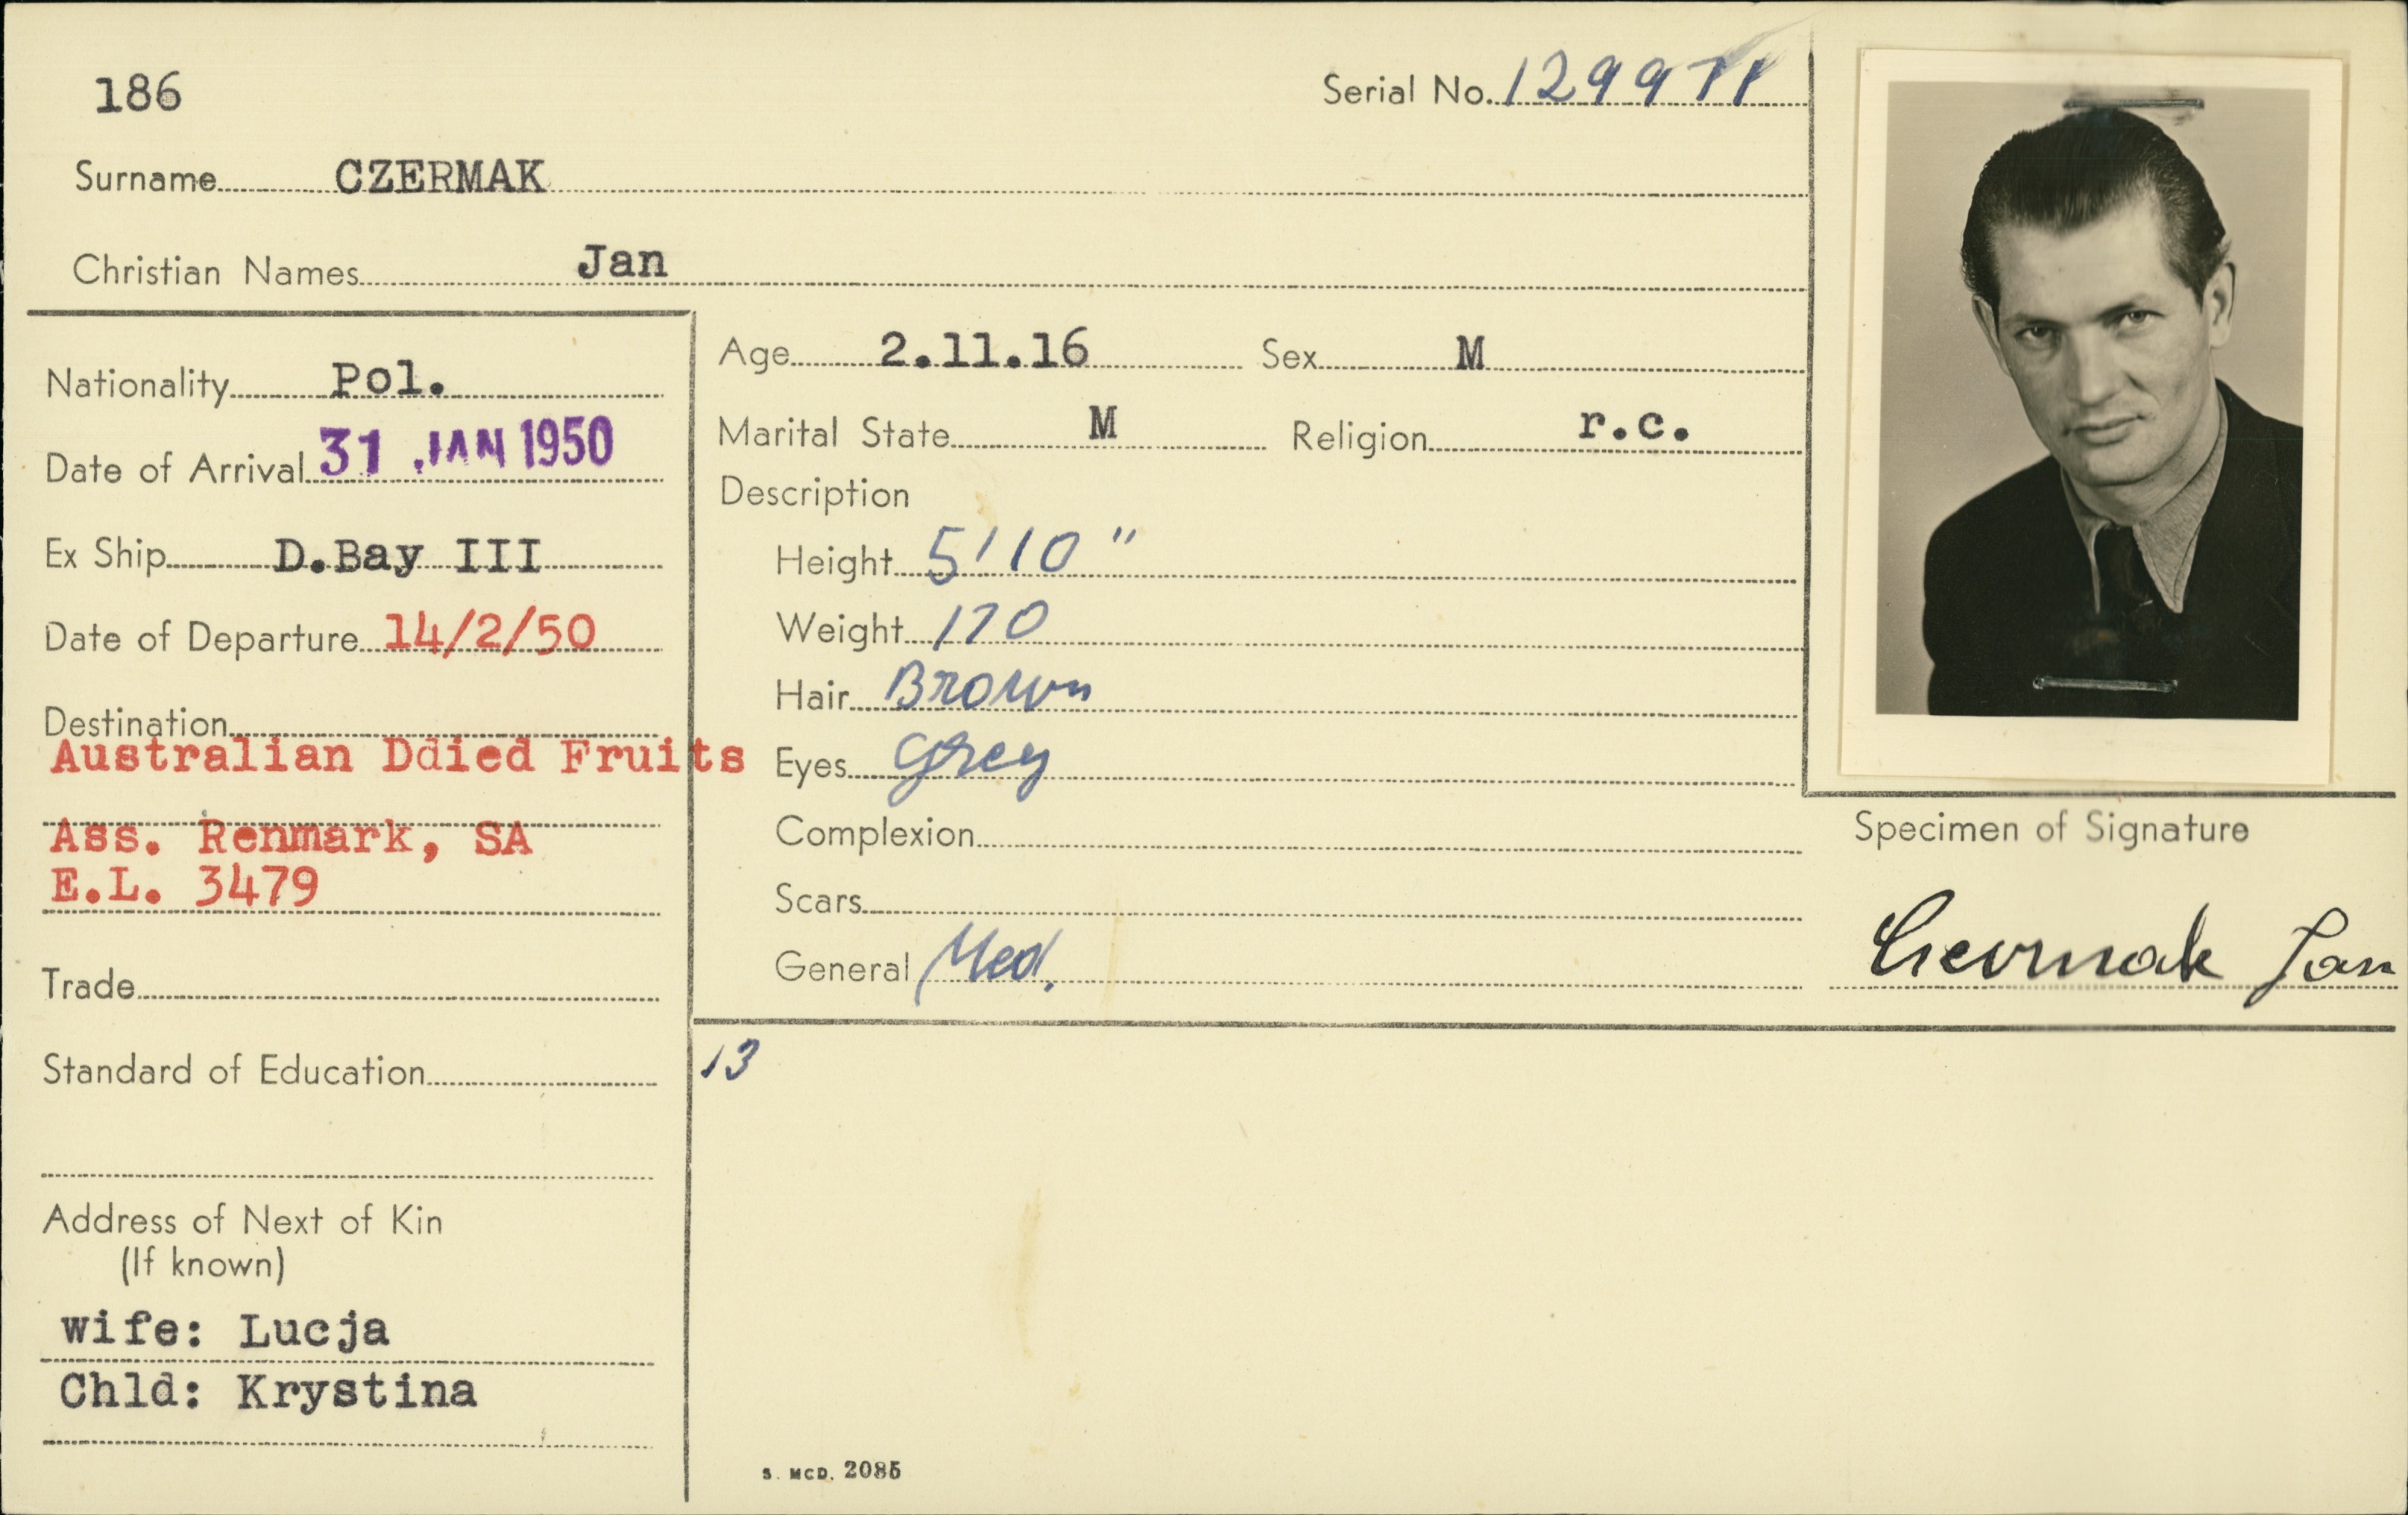 186
Serial No. 129971
Surname CZERMAK
Christian Names Jan
Nationality Pol.
Date of Arrival 31 JAN 1950
Ex Ship D.Bay III
Date of Departure 14/2/50
Destination
Australian Ddied Fruits
Ass. Renmark, SA
E.L. 3479
Trade
Standard of Education
Address of Next of Kin
(If known)
wife: Lucja
Chld: Krystina
Age 2.11.16 Sex M
Marital State M Religion r.c.
Description
Height 5'10"
Weight 170
Hair Brown
Eyes Grey
Complexion
Scars
General Med.
13
S. MCD. 2085
Specimen of Signature
Czermak Jan